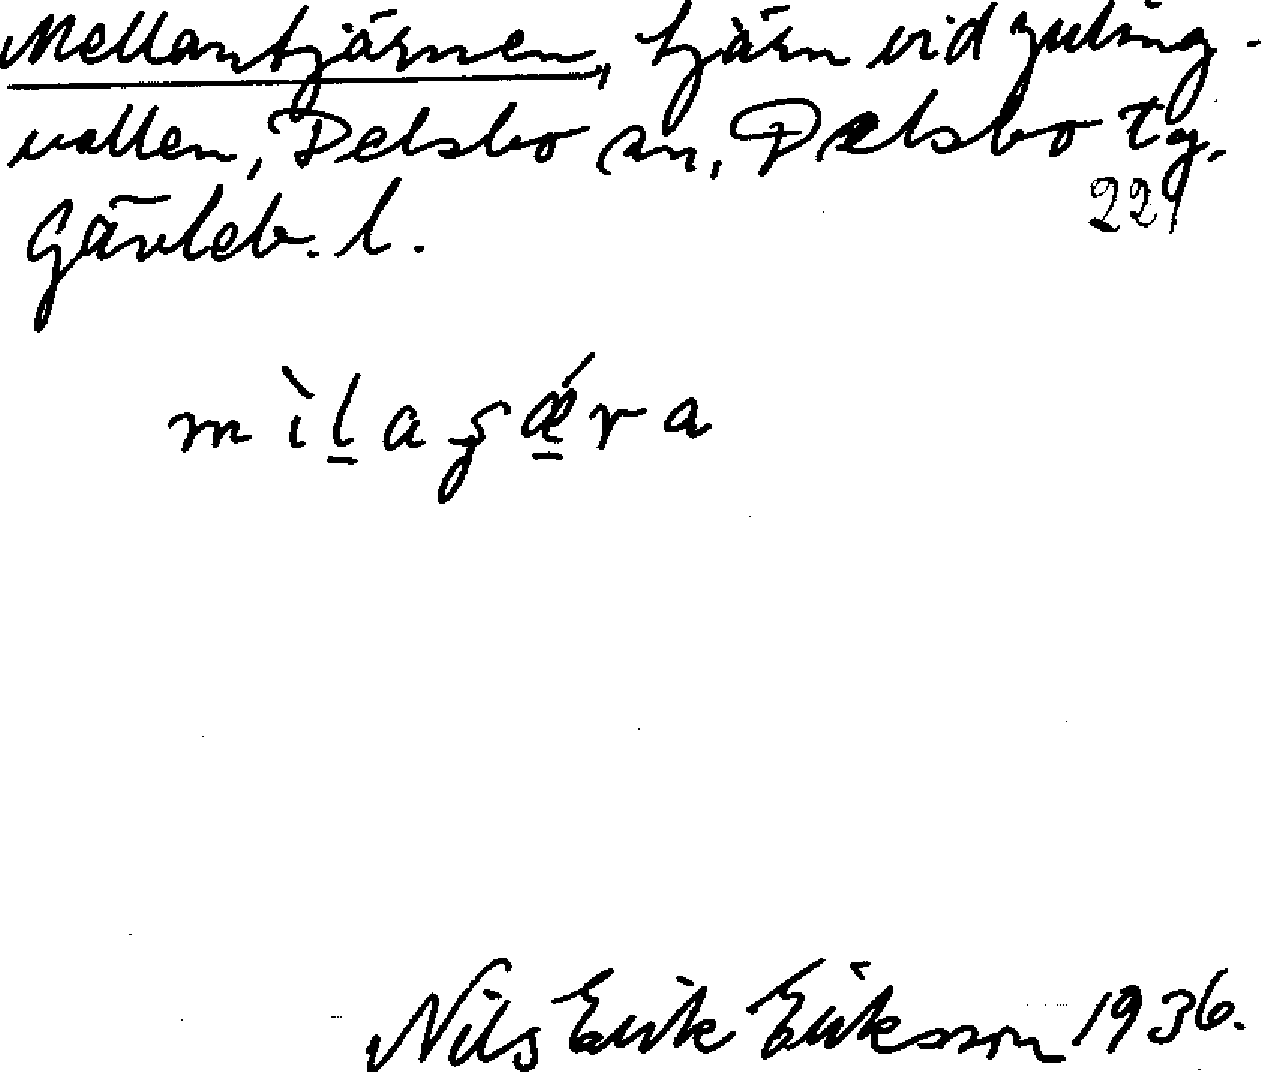 Mellantjärnen, tjärn vid Juling-
vallen, Delsbo sn, Delsbo tg.
Gävleb. l.
221
Nils Erik Eriksson 1936.